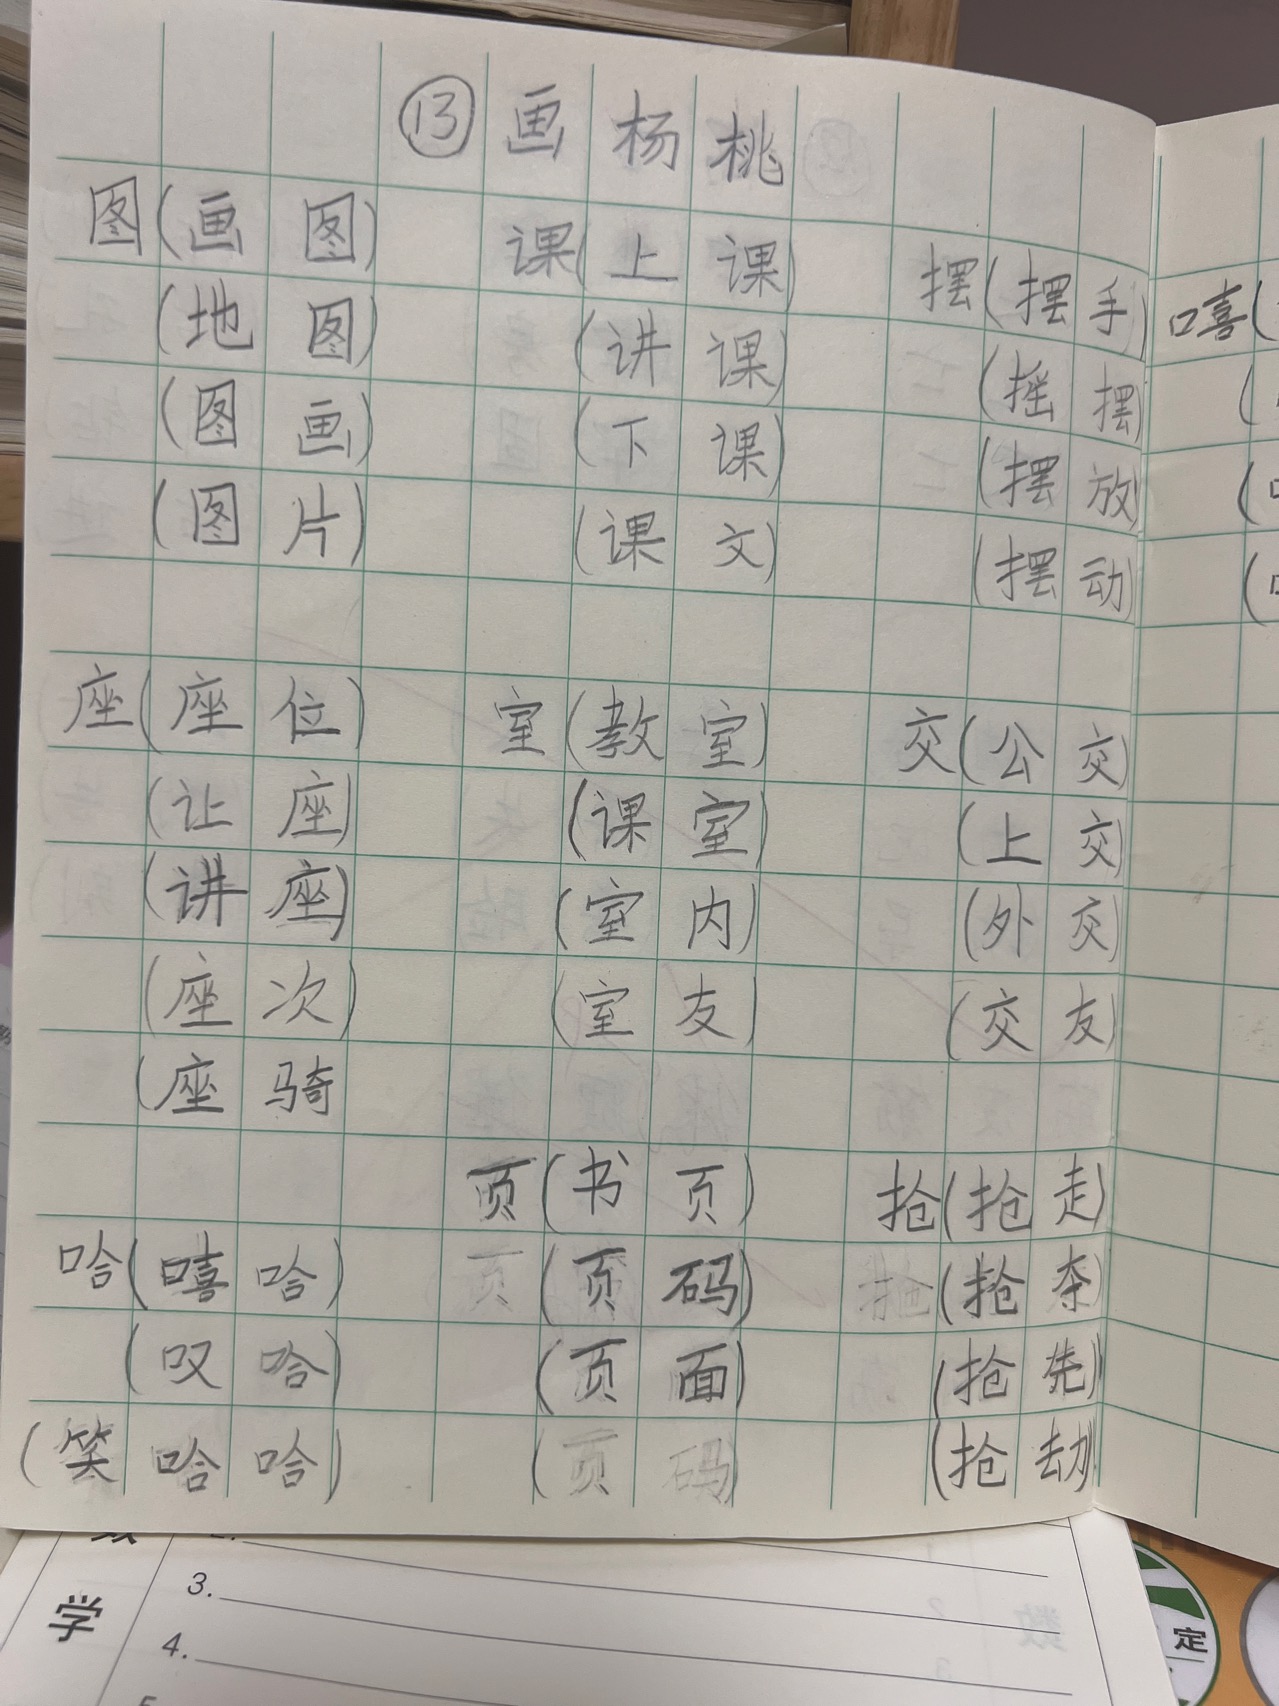 ⑬ 画杨桃
图(画图) 课(上课) 摆(摆手) 嘻(
(地图) (讲课) (摇摆) (
(图画) (下课) (摆放) (
(图片) (课文) (摆动) (
座(座位) 室(教室) 交(公交)
(让座) (课室) (上交)
(讲座) (室内) (外交)
(座次) (室友) (交友)
(座骑
页(书页) 抢(抢走)
哈(嘻哈) 页(页码) (抢夺)
(叹哈) (页面) (抢先)
(笑哈哈) (页码) (抢劫)
学
3.
4.
定